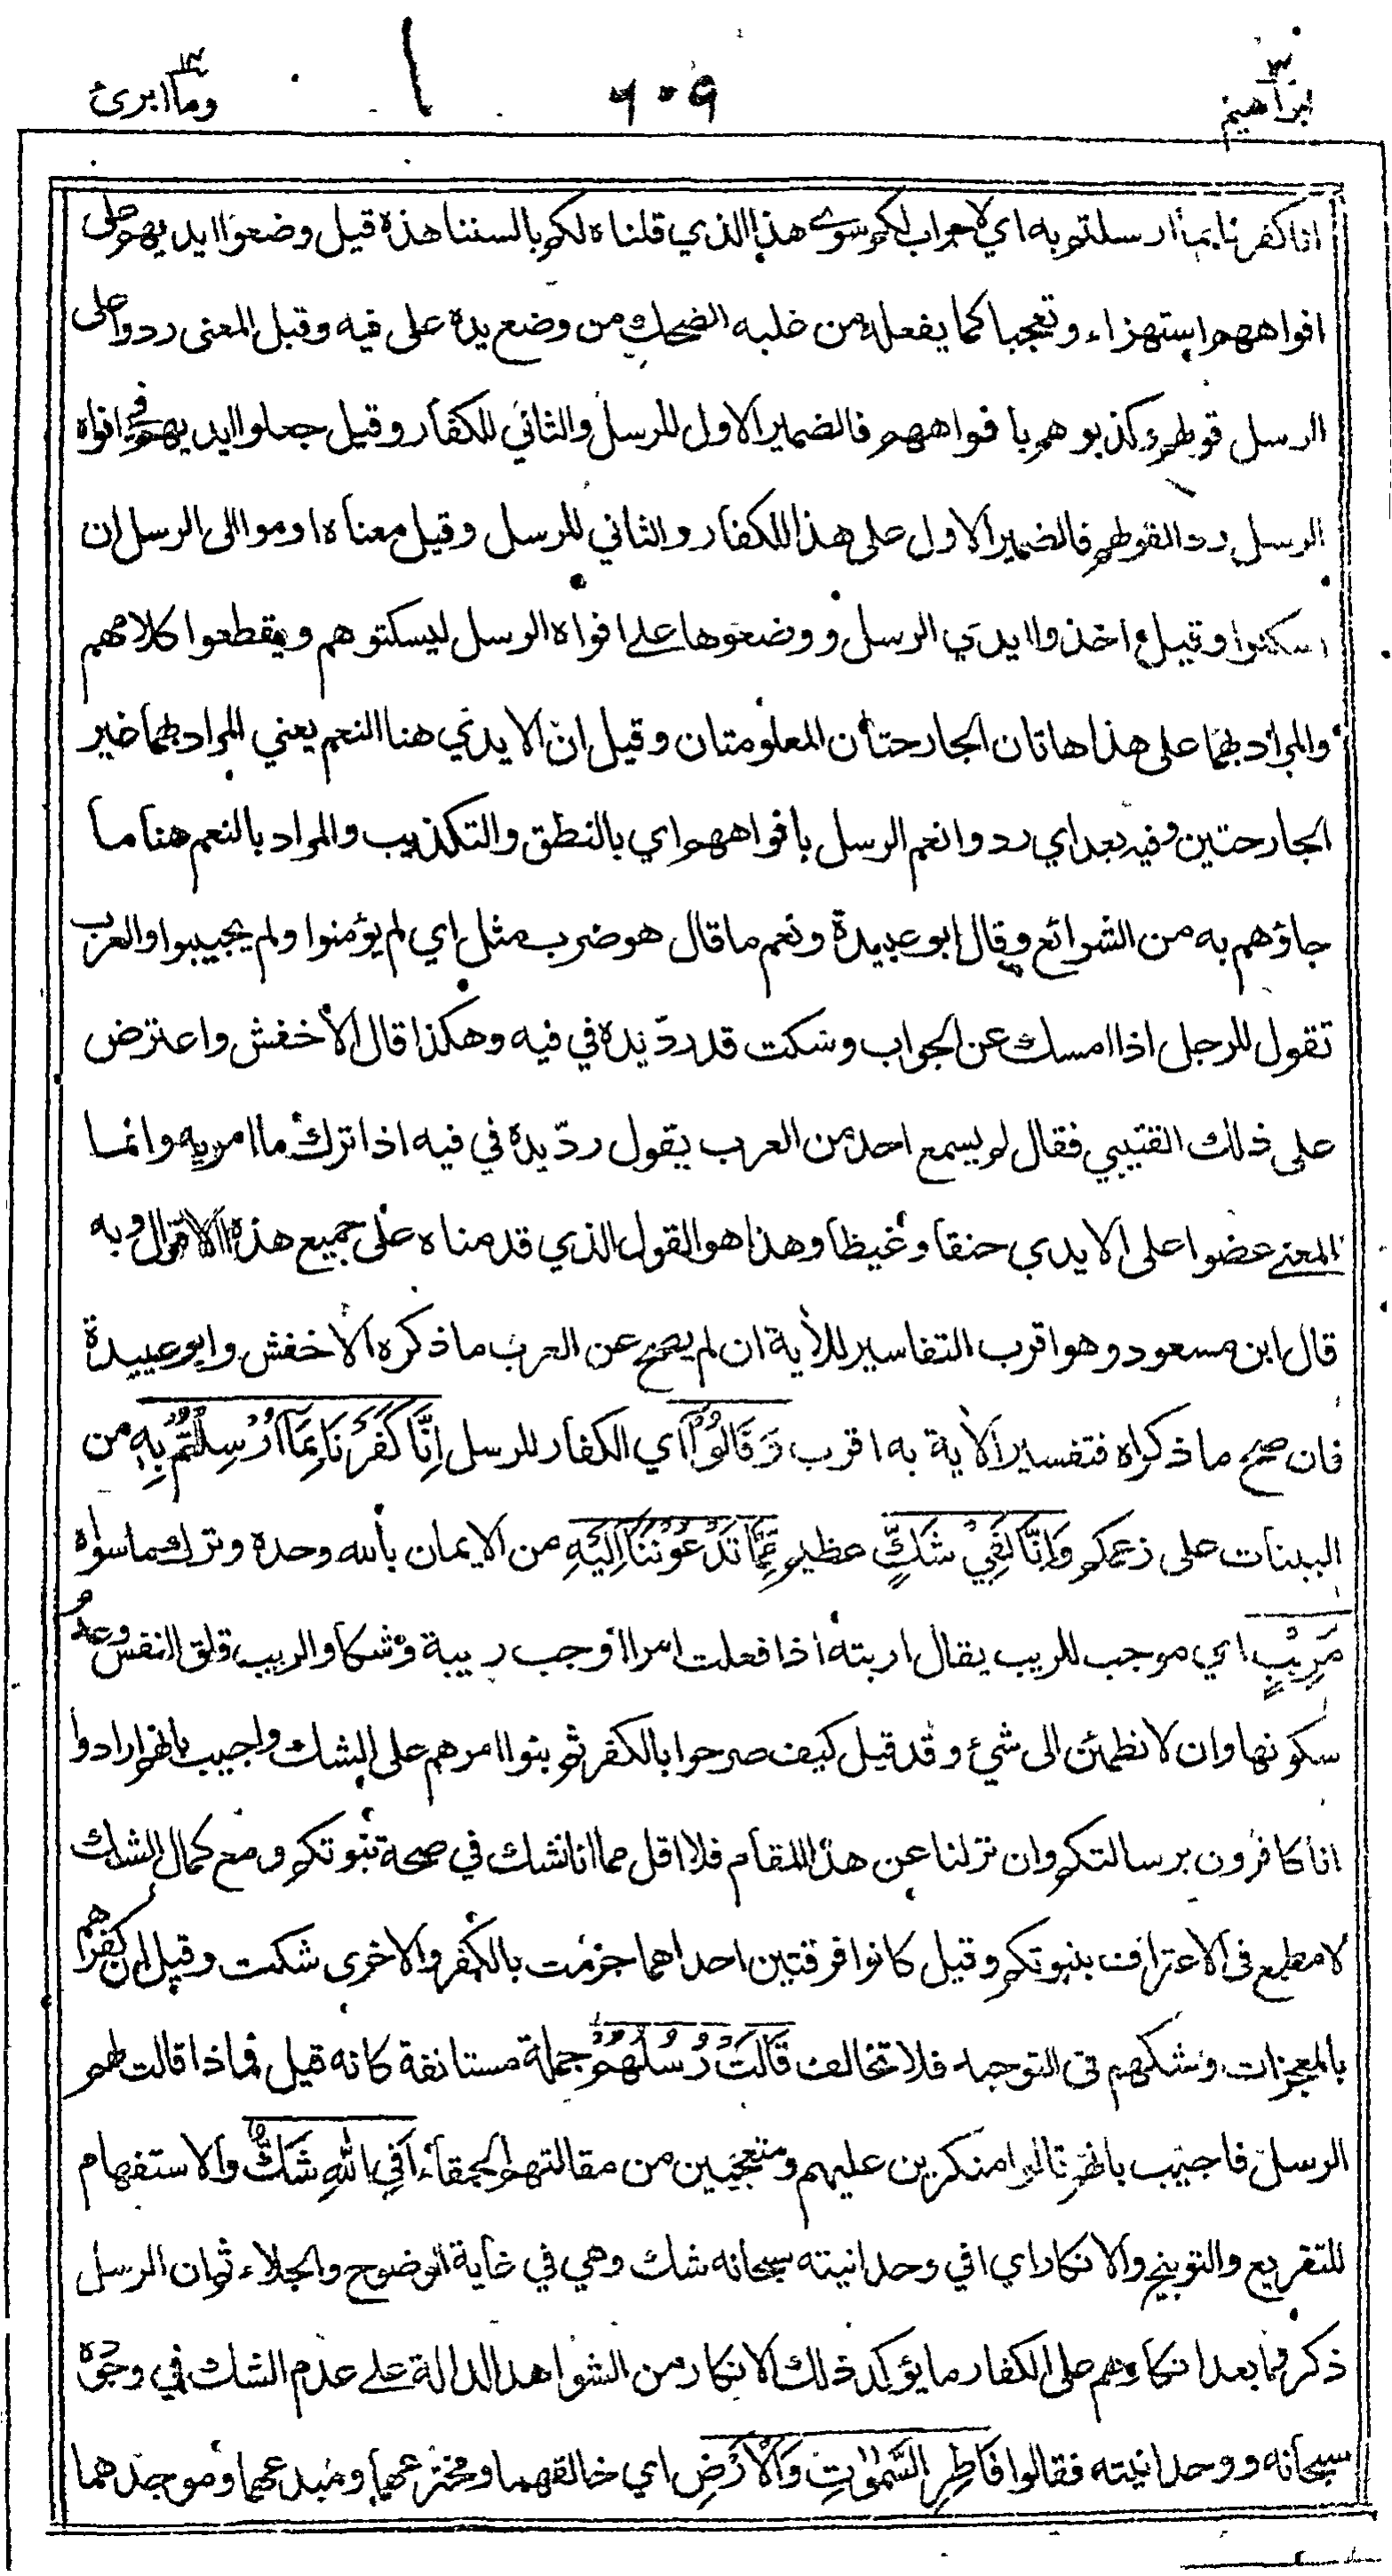 ابراهيم ١٤
٦٠٩
وما ابرئ ١٣
انا كفرنا بما ارسلتم به اي لا جواب لكم سوى هذا الذي قلناه لكم بالسنتنا هذه قيل وضعوا ايديهم على
افواههم استهزاء وتعجبا كما يفعله من غلبه الضحك من وضع يده على فيه وقيل المعنى ردوا على
الرسل قولهم وكذبوهم بافواههم فالضمير الاول للرسل والثاني للكفار وقيل جعلوا ايديهم في افواه
الرسل ردا لقولهم فالضمير الاول على هذا للكفار والثاني للرسل وقيل معناه اوموا الى الرسل ان
اسكتوا وقيل اخذوا ايدي الرسل ووضعوها على افواه الرسل ليسكتوهم ويقطعوا كلامهم
والمراد بهما على هذا هاتان الجارحتان المعلومتان وقيل ان الايدي هنا النعم يعني المراد بهما غير
الجارحتين وفيه بعد اي ردوا نعم الرسل بافواههم اي بالنطق والتكذيب والمراد بالنعم هنا ما
جاؤهم به من الشرائع وقال ابو عبيدة ونعم ما قال هو ضرب مثل اي لم يؤمنوا ولم يجيبوا والعرب
تقول للرجل اذا امسك عن الجواب وسكت قد ردّ يده في فيه وهكذا قال الأخفش واعترض
على ذلك القتيبي فقال لم يسمع احد من العرب يقول ردّ يده في فيه اذا ترك ما امر به وانما
المعنى عضوا على الايدي حنقا وغيظا وهذا هو القول الذي قدمناه على جميع هذه الاقوال وبه
قال ابن مسعود وهو اقرب التفاسير للأية ان لم يصح عن العرب ما ذكره الاخفش وابو عبيدة
فان صح ما ذكراه فتفسير الأية به اقرب وَقَالُوْا اي الكفار للرسل اِنَّا كَفَرْنَا بِمَآ اُرْسِلْتُمْ بِهٖ من
البينات على زعمكم وَاِنَّا لَفِيْ شَكٍّ عظيم مِّمَّا تَدْعُوْنَنَا اِلَيْهِ من الايمان بالله وحده وترك ما سواه
مُرِيْبٍ اي موجب للريب يقال اربته اذا فعلت امرا اوجب ريبة وشكا والريب قلق النفس وعدم
سكونها وان لا تطمئن الى شيء وقد قيل كيف صرحوا بالكفر ثم بنوا امرهم على الشك واجيب بانهم ارادوا
انا كافرون برسالتكم وان نزلنا عن هذا المقام فلا اقل مما انا نشك في صحة نبوتكم ومع كمال الشك
لا مطمع في الاعتراف بنبوتكم وقيل كانوا فرقتين احداهما جزمت بالكفر والاخرى شكت وقيل ان كفرهم
بالمعجزات وشكهم في التوحيد فلا تخالف قَالَتْ رُسُلُهُمْ جملة مستانفة كانه قيل فماذا قالت لهم
الرسل فاجيب بانهم قالوا منكرين عليهم ومتعجبين من مقالتهم الحمقاء اَفِي اللّٰهِ شَكٌّ والاستفهام
للتقريع والتوبيخ والانكار اي افي وحدانيته سبحانه شك وهي في غاية الوضوح والجلاء ثم ان الرسل
ذكروا بعد انكارهم على الكفار ما يؤكد ذلك الانكار من الشواهد الدالة على عدم الشك في وجوده
سبحانه ووحدانيته فقالوا فَاطِرِ السَّمٰوٰتِ وَالْاَرْضِ اي خالقهما ومخترعهما ومبدعهما وموجدهما